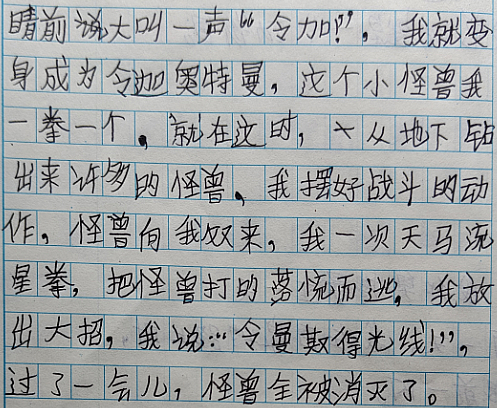 睛前说大叫一声“令加!”，我就变
身成为令迦奥特曼，这个小怪兽我
一拳一个。就在这时，又从地下钻
出来许多的怪兽，我摆好战斗的动
作，怪兽向我奴来，我一次天马流
星拳，把怪兽打的落慌而逃，我放
出大招，我说：“令曼斯得光线!”，
过了一会儿，怪兽全被消灭了。